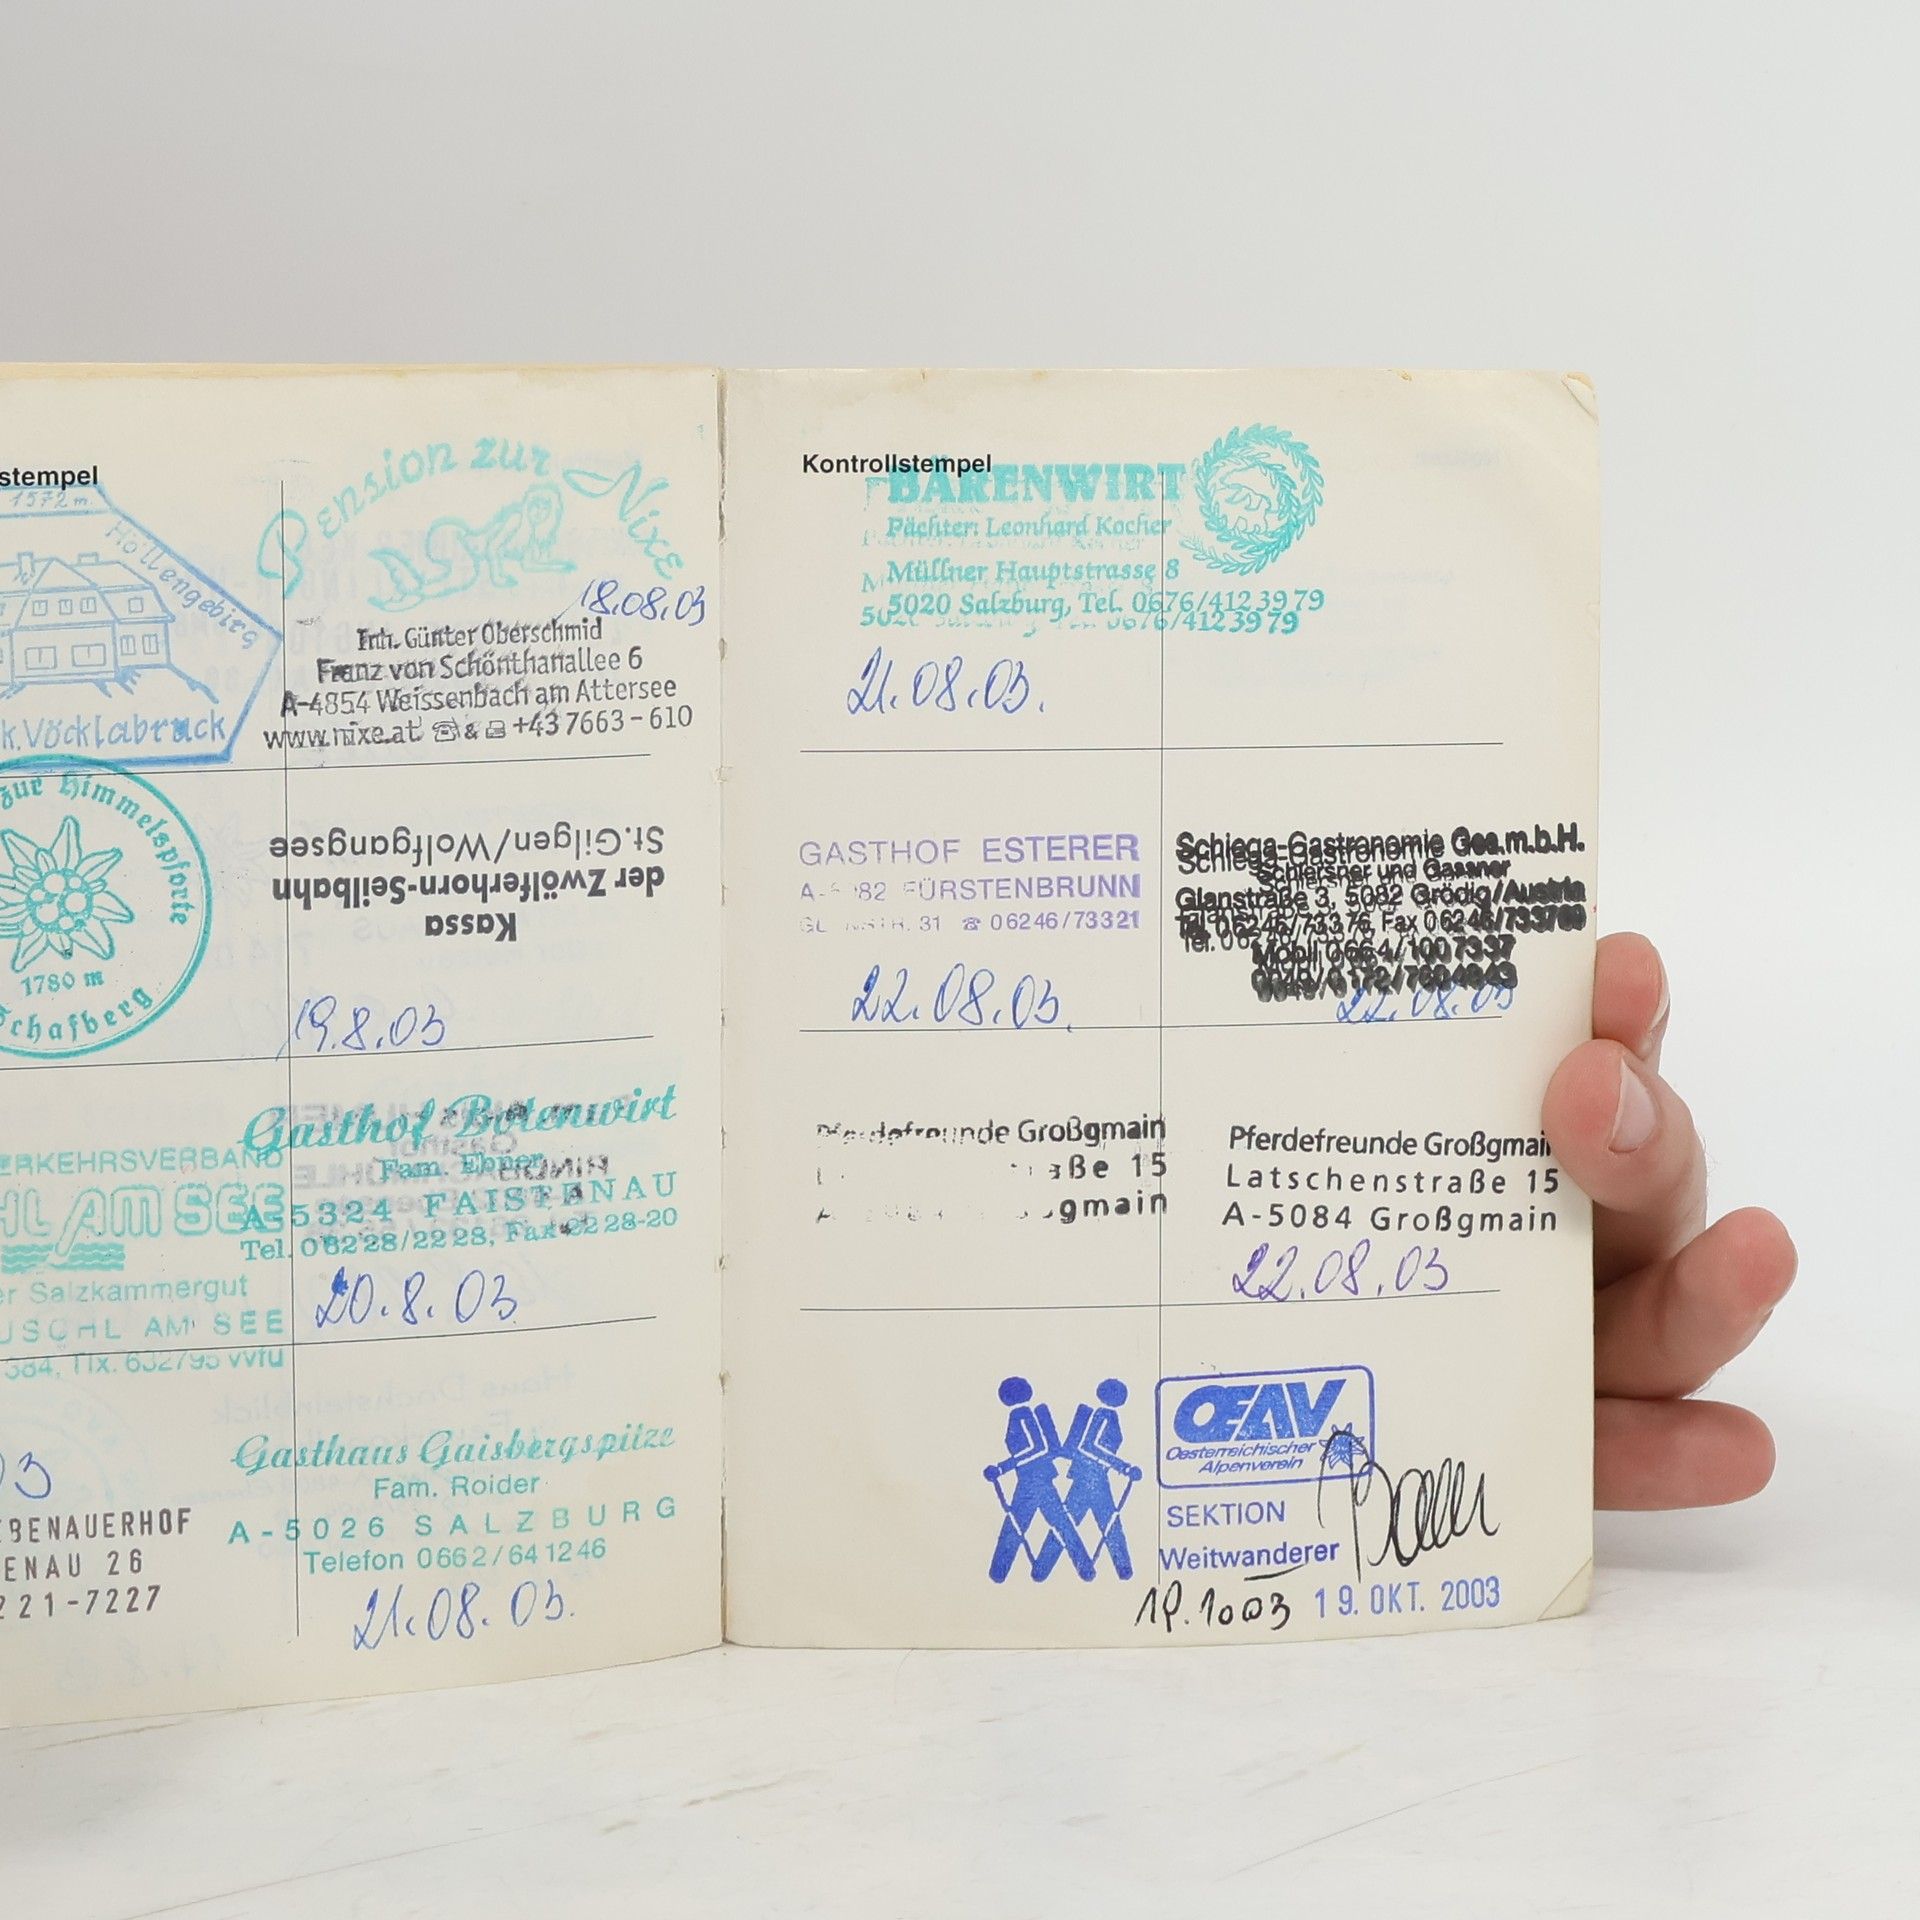 stempel
1572 m.
Höllengebirg
k. Vöcklabruck
Pension zur Nixe
18.08.03
Inh. Günter Oberschmid
Franz von Schönthanallee 6
A-4854 Weissenbach am Attersee
www.nixe.at ☎ & +43 7663 - 610
zur Himmelspforte
1780 m
Schafberg
Kassa
der Zwölferhorn-Seilbahn
St.Gilgen/Wolfgangsee
19.8.03
ERKEHRSVERBAND
HL AM SEE
er Salzkammergut
USCHL AM SEE
Tlx. 632795 vvfu
Gasthof Botenwirt
Fam. Ebner
A-5324 FAISTENAU
Tel. 06228/2228, Fax 2228-20
20.8.03
03
EBENAUERHOF
ENAU 26
221-7227
Gasthaus Gaisbergspitze
Fam. Roider
A-5026 SALZBURG
Telefon 0662/641246
21.08.03.
Kontrollstempel
BÄRENWIRT
Pächter: Leonhard Kocher
Müllner Hauptstrasse 8
5020 Salzburg, Tel. 0676/4123979
21.08.03.
GASTHOF ESTERER
FÜRSTENBRUNN
31 ☎ 06246/73321
22.08.03.
Schiega-Gastronomie Ges.m.b.H.
Schiersner und Gassner
Glanstraße 3, 5082 Grödig/Austria
Tel. 06246/73376, Fax 06246/733760
Mobil 0664/1007337
22.08.03
Pferdefreunde Großgmain
aße 15
gmain
Pferdefreunde Großgmain
Latschenstraße 15
A-5084 Großgmain
22.08.03
OEAV
Oesterreichischer
Alpenverein
SEKTION
Weitwanderer
19.1003 19. OKT. 2003